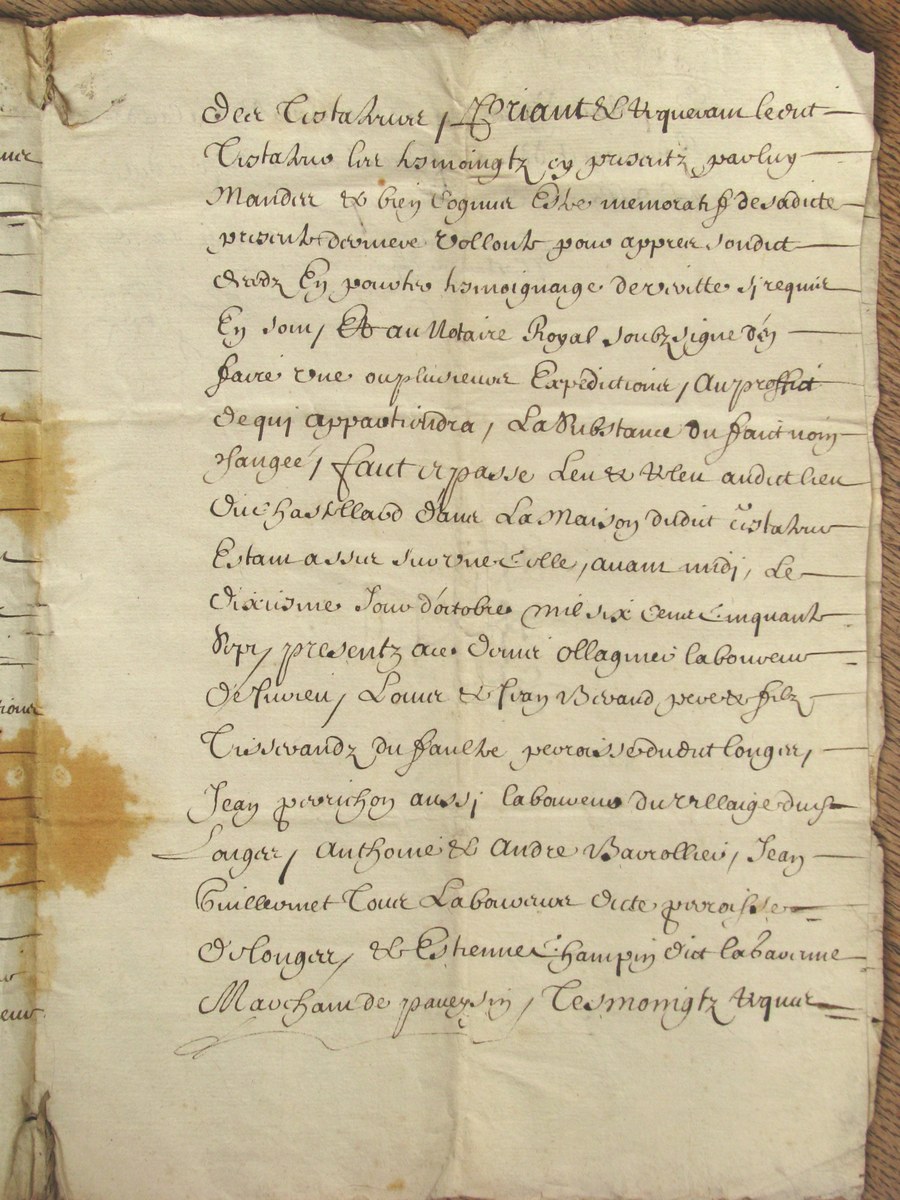 des testateurs, Priant & requerant ledict
Testateur les tesmoingtz cy presentz par luy
Mandes & bien cognus Estre memoratifz de sadicte
presente derniere vollonte pour appres sondict
decedz En porter tesmoignaige de veritte si requis
En sont, Et au Notaire Royal soubzsigne d'en
faire une ou plusieurs Expedictions, Au proffict
de qui appartiendra, La Substance du faict non
changée, faict et passe Leu & releu audict lieu
du chastellard dans La Maison dudict testateur
Estant assis sur une selle, avant midi, Le
dixiesme Jour d'octobre mil six cents Cinquante
Sept, presentz ace. Denis ollagnier laboureur
de Luvieu, Louis & Jean Berand pere & filz
Tisserandz du faulte perroisse dudict longes,
Jean perrichon aussi laboureur du villaige dudict
Longes, Anthoine & Andre Barrollier, Jean
Guillermet Tous Laboureurs dicte perroisse
de longes, & Estienne Champin dict labavenne
Marchant de paveysin, Tesmoingtz requis